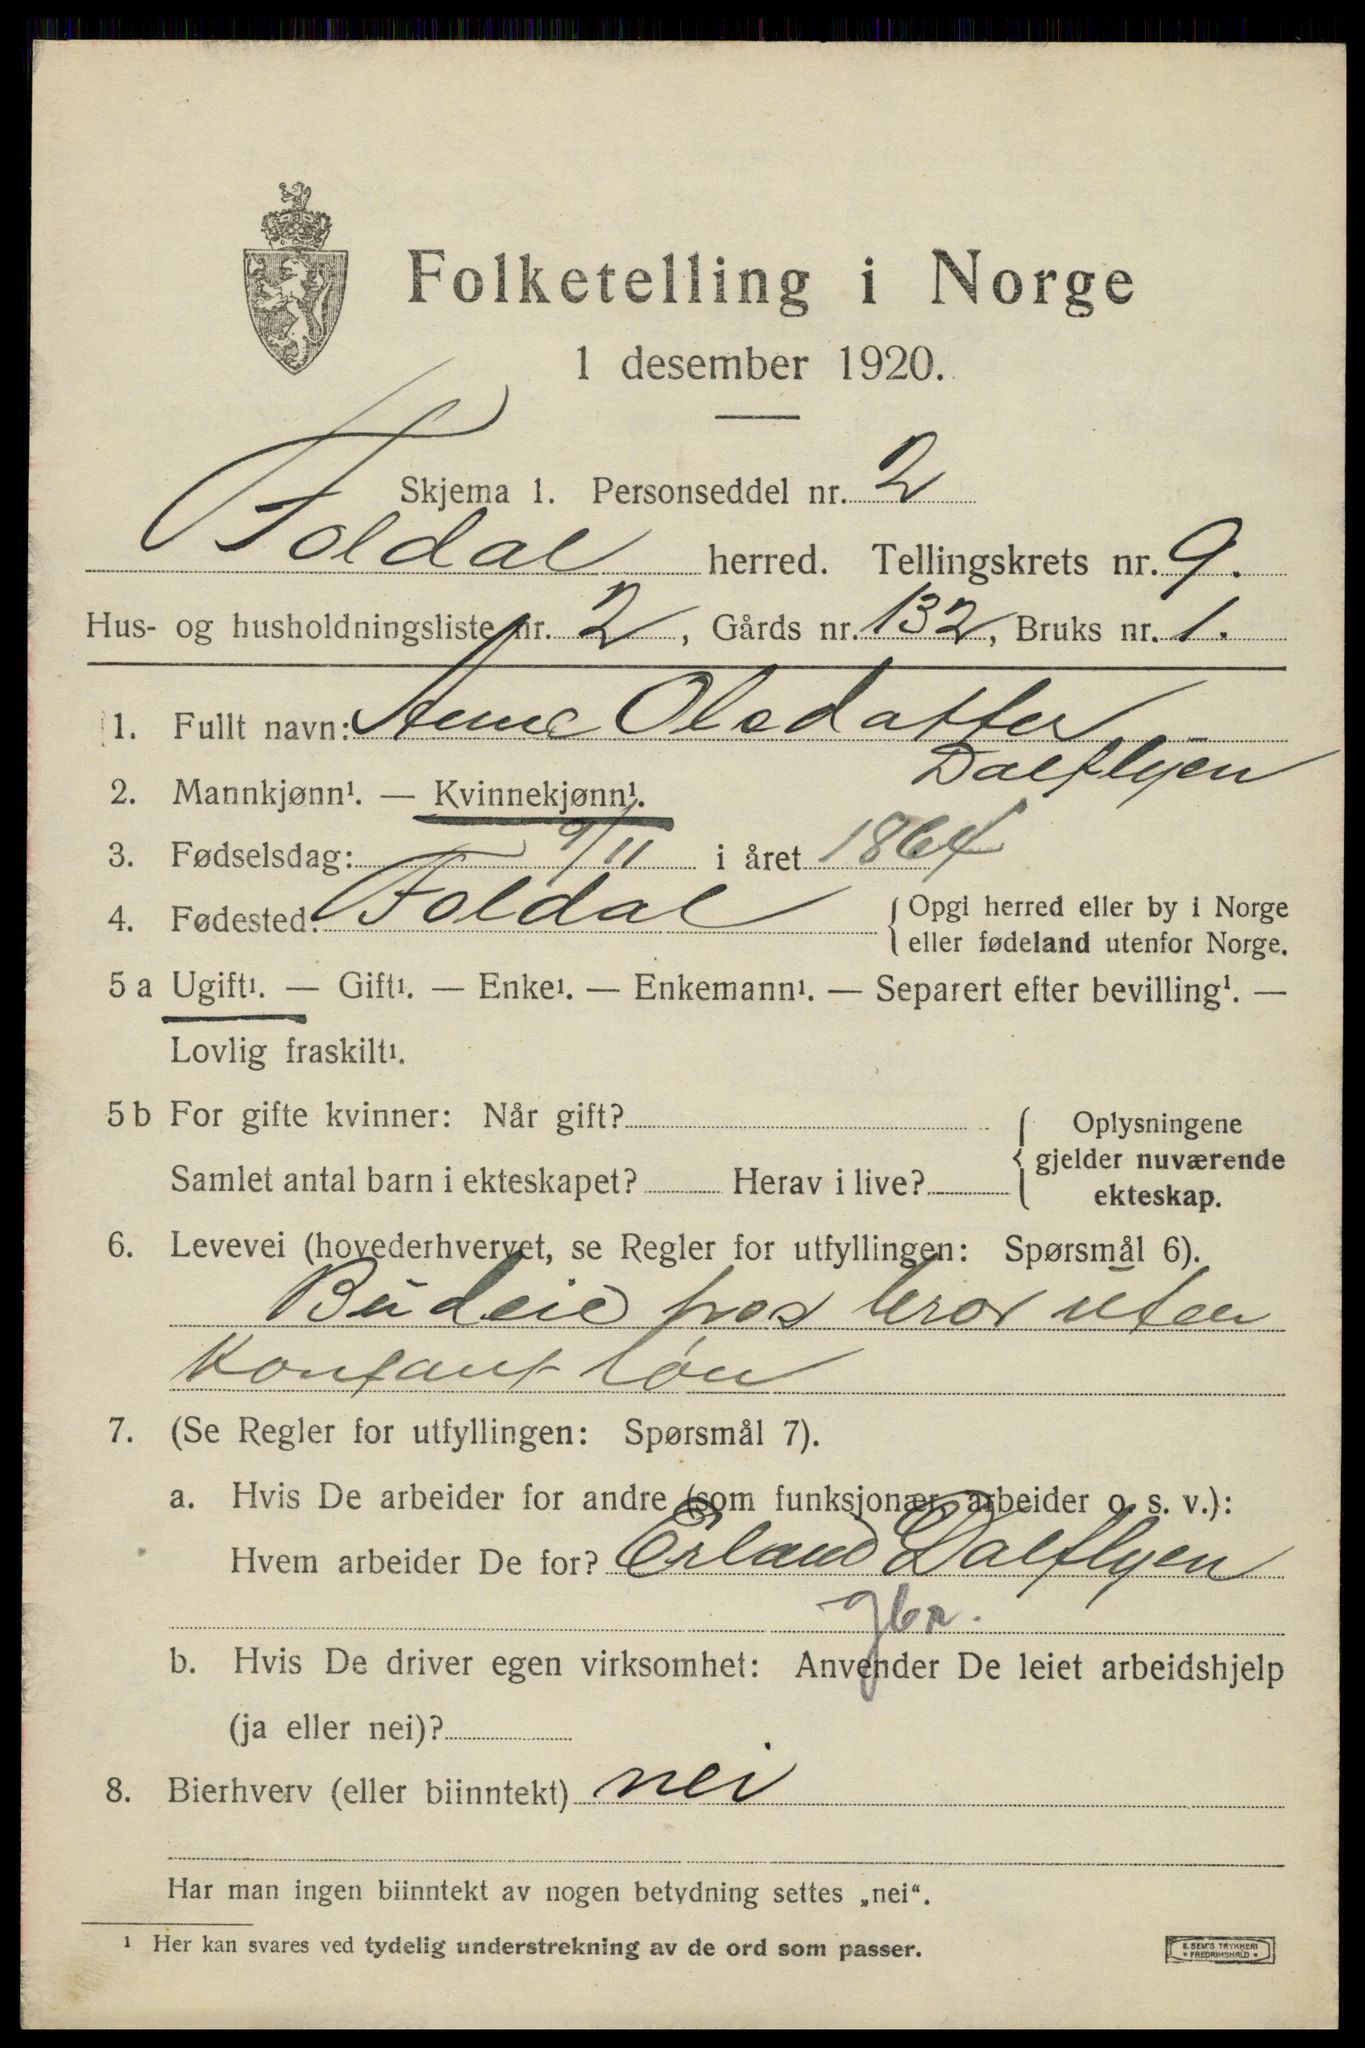 Folketelling i Norge
1 desember 1920.
Skjema 1. Personseddel nr. 2
Foldal herred. Tellingskrets nr. 9.
Hus- og husholdningsliste nr. 2, Gårds nr. 132, Bruks nr. 1.
1. Fullt navn: Anne Olsdatter
Dalflyen
2. Mannkjønn¹. — Kvinnekjønn¹.
3. Fødselsdag: 9/11 i året 1864
4. Fødested: Foldal {Opgi herred eller by i Norge
eller fødeland utenfor Norge.
5 a Ugift¹. — Gift¹. — Enke¹. — Enkemann¹. — Separert efter bevilling¹. —
Lovlig fraskilt¹.
5 b For gifte kvinner: Når gift? {Oplysningene
gjelder nuværende
Samlet antal barn i ekteskapet? Herav i live? ekteskap.
6. Levevei (hovederhvervet, se Regler for utfyllingen: Spørsmål 6).
Budeie hos bror uten
Kontant løn
7. (Se Regler for utfyllingen: Spørsmål 7).
a. Hvis De arbeider for andre (som funksjonær, arbeider o. s. v.):
Hvem arbeider De for? Erland Dalflyen
gbr.
b. Hvis De driver egen virksomhet: Anvender De leiet arbeidshjelp
(ja eller nei)?
8. Bierhverv (eller biinntekt) nei
Har man ingen biinntekt av nogen betydning settes „nei“.
¹ Her kan svares ved tydelig understrekning av de ord som passer.
E. SEM'S TRYKKERI
* FREDRIKSHALD *